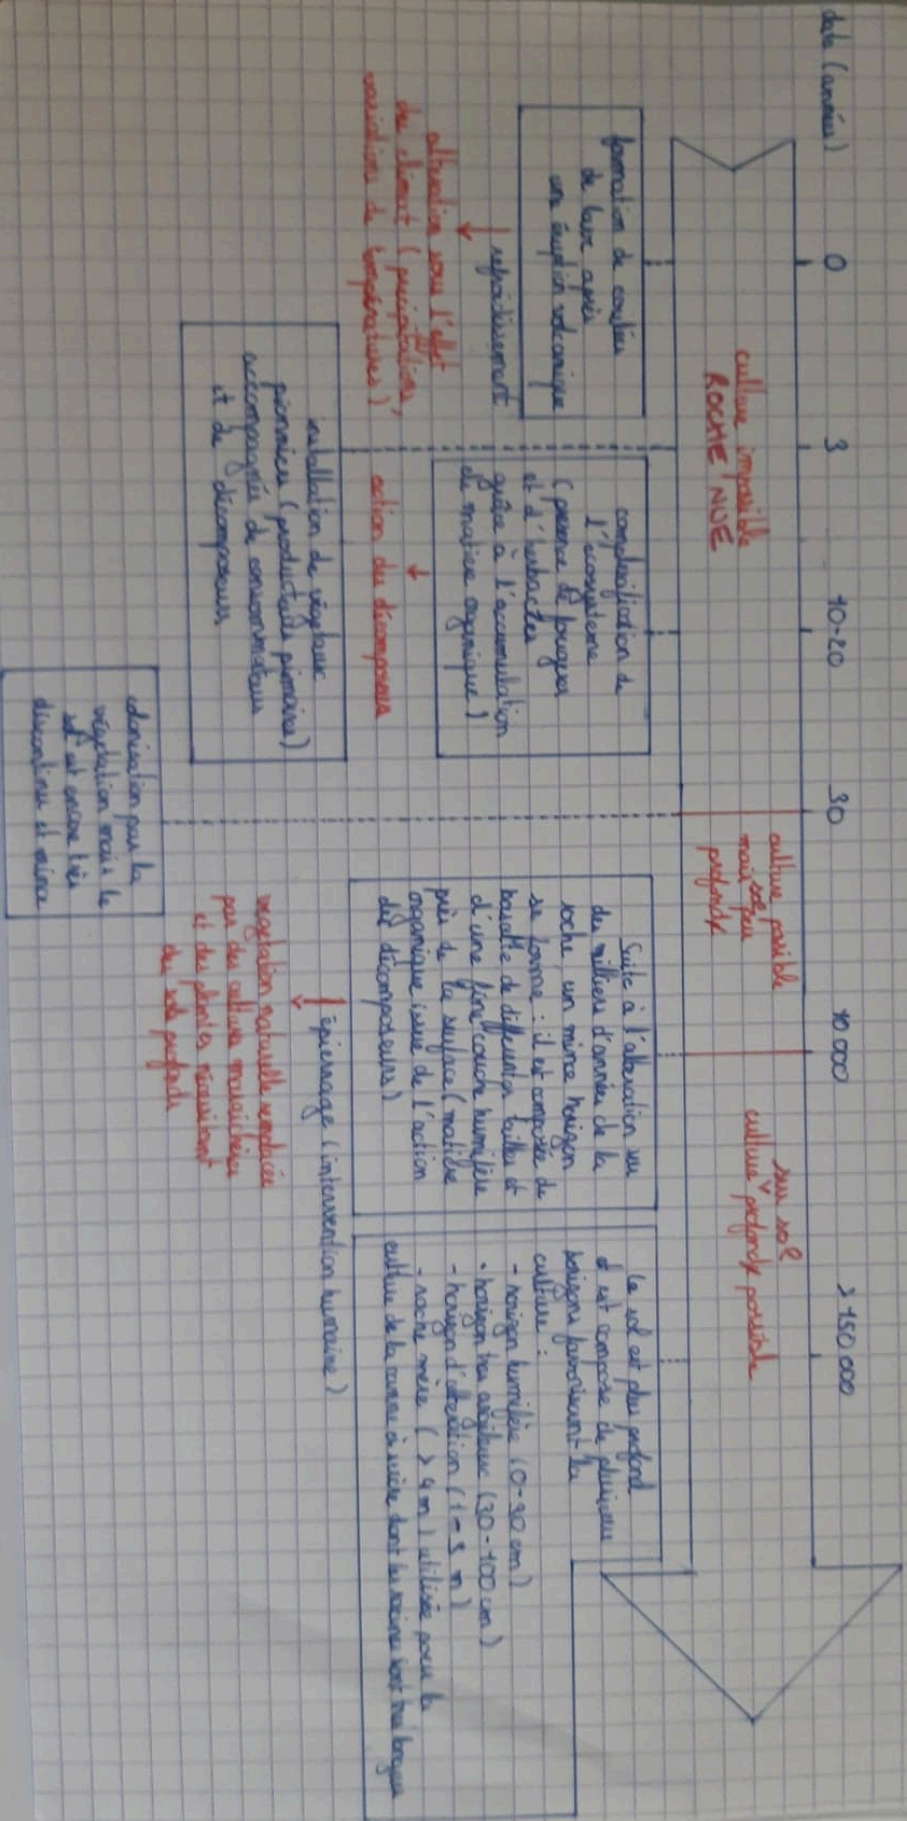 date (années)
0
3
10-20
30
10 000
> 150 000
culture impossible
ROCHE NUE
culture possible
sol
mais peu
profonds
sur sol
culture profonds possible
formation de coulées
de lave après
une éruption volcanique
refroidissement
altération sous l'effet
du climat (précipitations,
variations de températures)
complexification de
l'écosystème
(présence de fougères
et d'herbacées
grâce à l'accumulation
de matière organique)
action des décomposeurs
installation de végétaux
pionniers (producteurs primaires)
accompagnés de consommateurs
et de décomposeurs
colonisation par la
végétation mais le
sol est encore très
discontinu et mince
Suite à l'altération sur
des milliers d'années de la
roche un mince horizon
se forme : il est composé de
basalte de différentes tailles et
d'une fine couche humifère
près de la surface (matière
organique issue de l'action
des décomposeurs)
épierrage (intervention humaine)
végétation naturelle remplacée
par des cultures maraîchères
et des plantes nécessitant
des sols profonds
le sol est plus profond
et est composé de plusieurs
horizons favorisant la
culture :
- horizon humifère (0-30 cm)
- horizon très argileux (30-100 cm)
- horizon d'altération (1-3 m)
- roche mère (> 4 m) utilisée pour la
culture de la canne à sucre dont les racines sont très longues